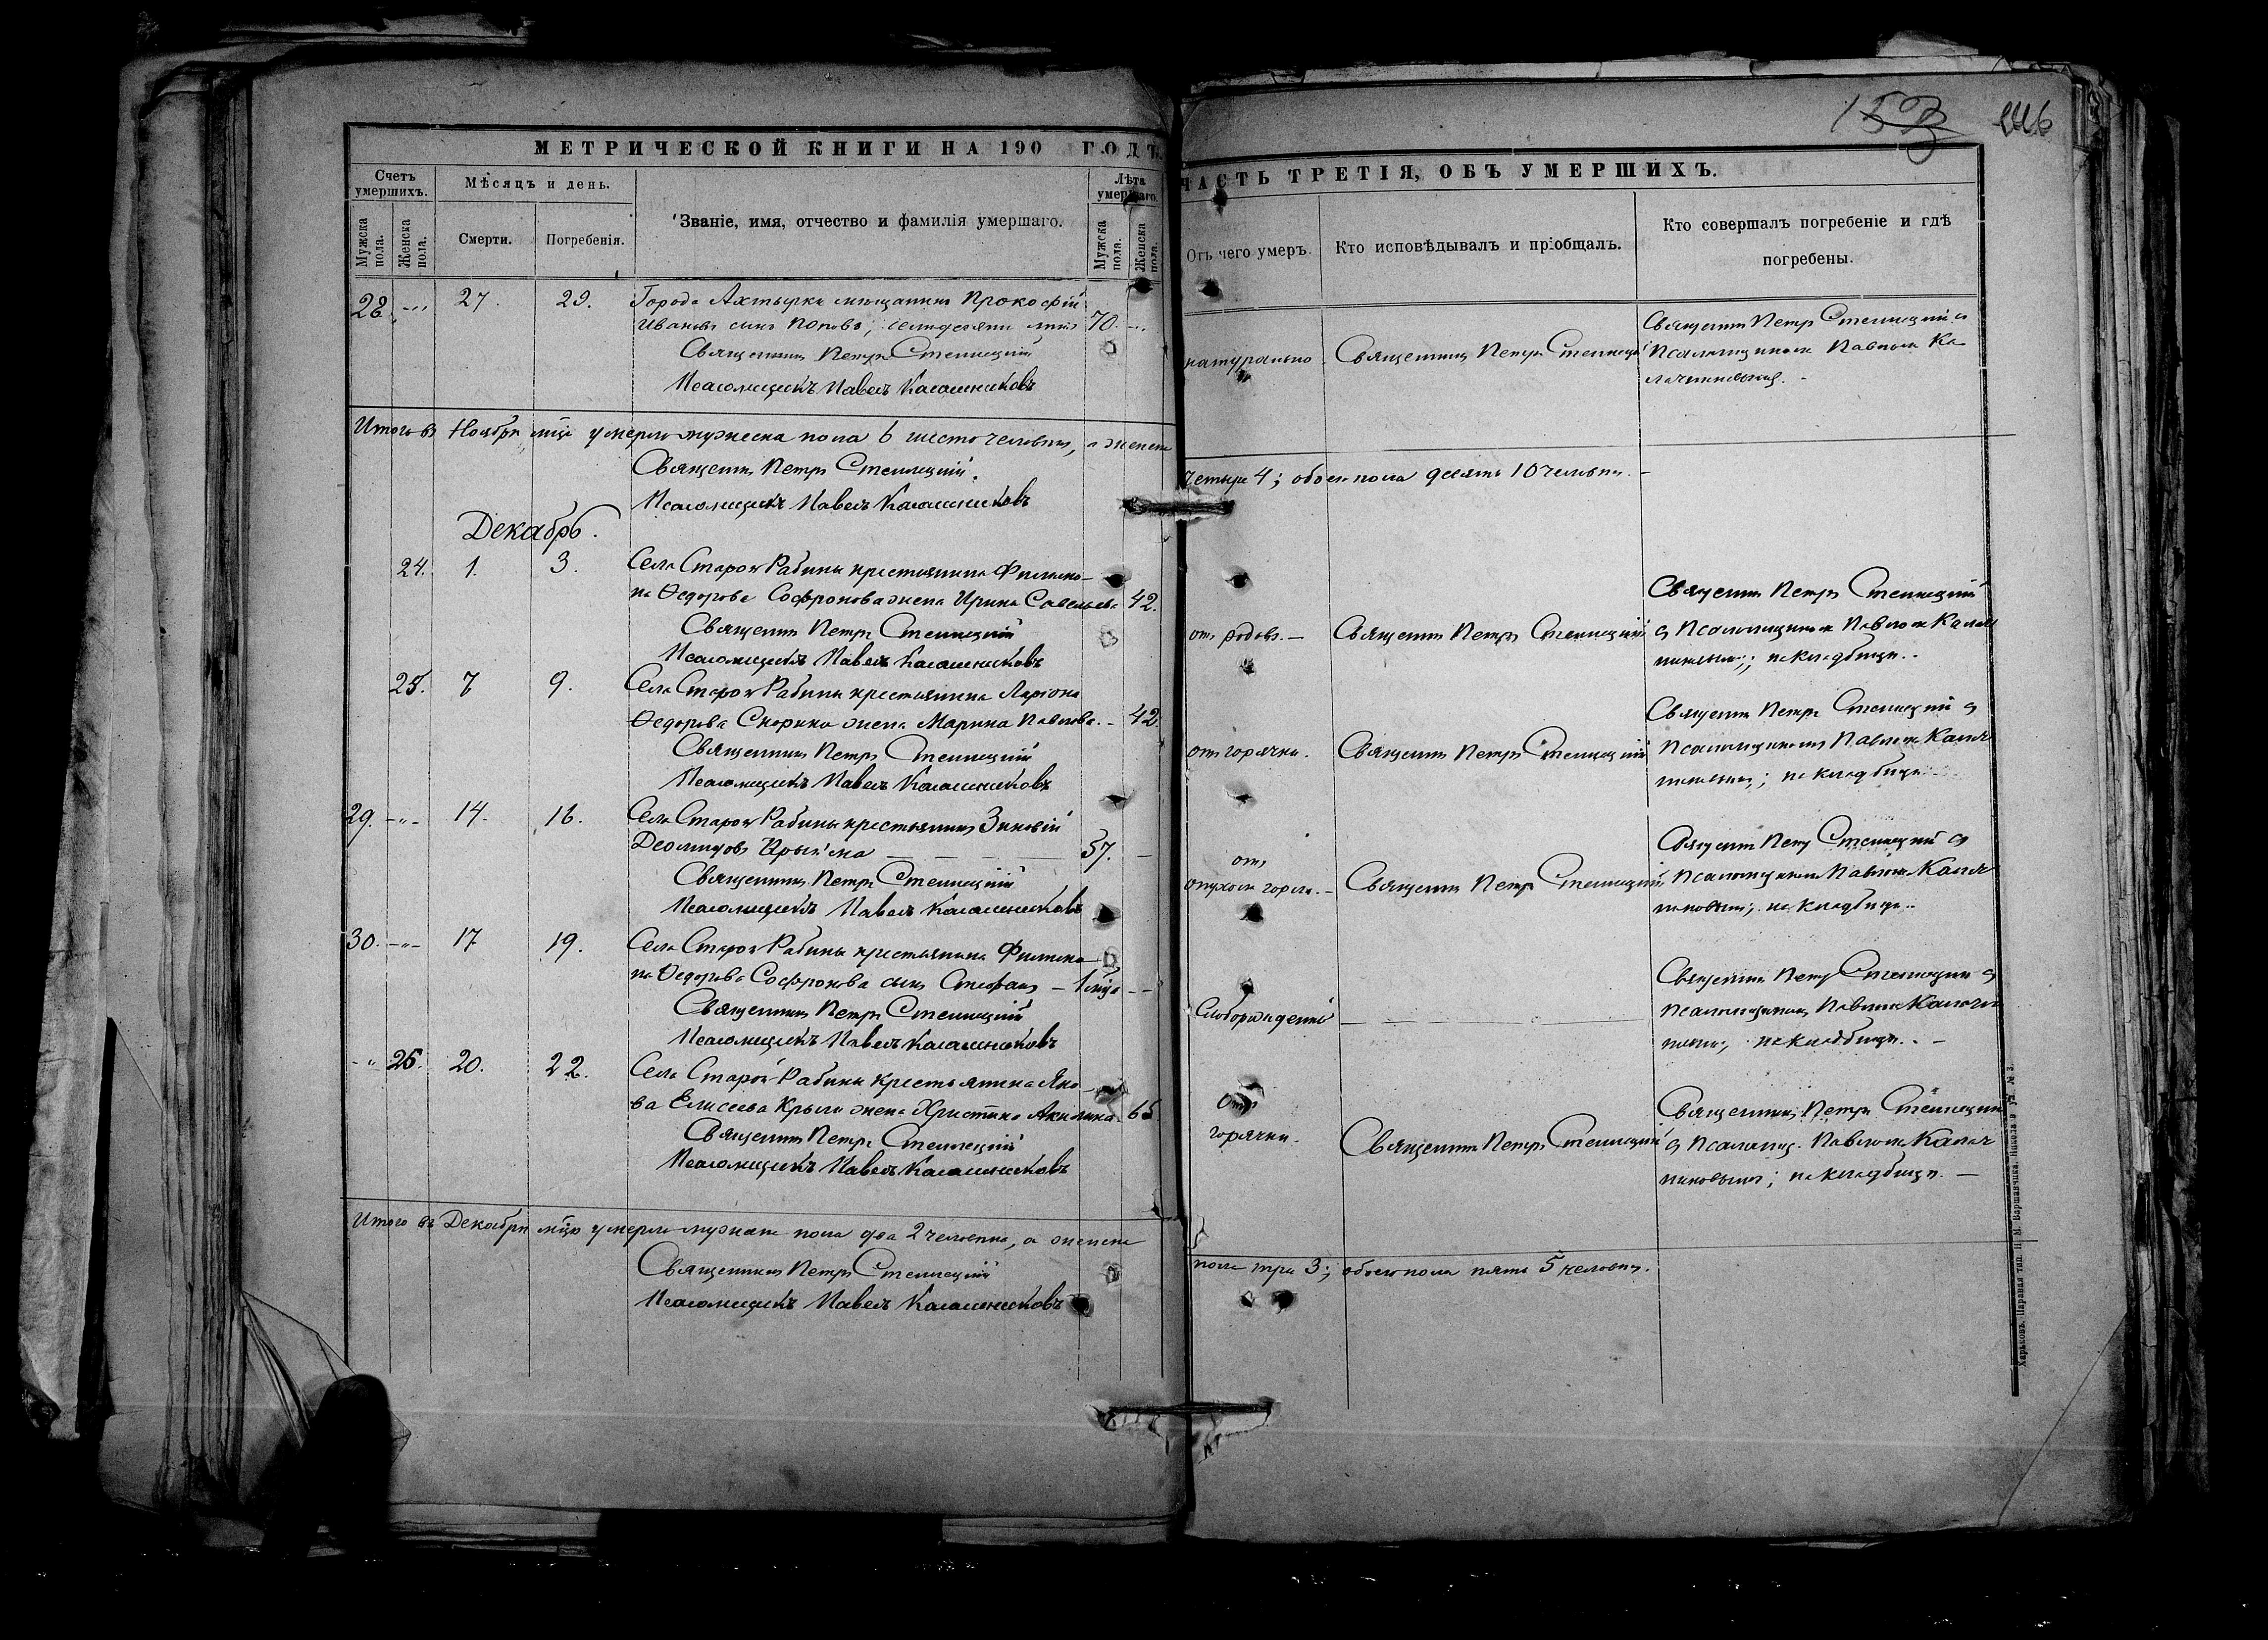 153 246
МЕТРИЧЕСКОЙ КНИГИ НА 190 ГОДЪ.
Счетъ умершихъ.
Мужска пола.
Женска пола.
Мѣсяцъ и день.
Смерти.
Погребенія.
Званіе, имя, отчество и фамилія умершаго.
Лѣта умершаго.
Мужска пола.
Женска пола.
28. 27. 29. Города Ахтырки мѣщанинъ Прокофій
Ивановъ сынъ Поповъ, семидесяти лѣтъ 70.
Священникъ Петръ Стеллецкій
Псаломщикъ Павелъ Калашниковъ
Итого въ Ноябрѣ мцѣ умерло мужеска пола 6 шесть человѣкъ, а женска
Священникъ Петръ Стеллецкій.
Псаломщикъ Павелъ Калашниковъ
Декабрь.
24. 1. 3. Села Старой Рабины крестьянина Филимо-
на Ѳедорова Софронова жена Ирина Савельева 42.
Священникъ Петръ Стеллецкій
Псаломщикъ Павелъ Калашниковъ
25. 7 9. Села Старой Рабины крестьянина Ларіона
Ѳедорова Скорика жена Марина Павлова. 42
Священникъ Петръ Стеллецкій
Псаломщикъ Павелъ Калашниковъ
29. 14. 16. Села Старой Рабины крестьянинъ Зиновій
Деомидовъ 57.
Священникъ Петръ Стеллецкій
Псаломщикъ Павелъ Калашниковъ
30. 17 19. Села Старой Рабины крестьянина Филимо-
на Ѳедорова Софронова сынъ Стефанъ 1 мца
Священникъ Петръ Стеллецкій
Псаломщикъ Павелъ Калашниковъ
26. 20. 22. Села Старой Рабины крестьянина Яко-
ва Елисеева Крыли жена Христина Акилина 65
Священникъ Петръ Стеллецкій
Псаломщикъ Павелъ Калашниковъ
Итого въ Декабрѣ мцѣ умерло мужеска пола два 2 человѣка, а женска
Священникъ Петръ Стеллецкій
Псаломщикъ Павелъ Калашниковъ
ЧАСТЬ ТРЕТІЯ, ОБЪ УМЕРШИХЪ.
Отъ чего умеръ.
Кто исповѣдывалъ и пріобщалъ.
Кто совершалъ погребеніе и гдѣ
погребены.
натурально. Священникъ Петръ Стеллецкій
Священникъ Петръ Стеллецкій съ
Псаломщикомъ Павломъ Ка-
четыре 4; обоего пола десять 10 человѣкъ.
отъ родовъ. Священникъ Петръ Стеллецкій
Священникъ Петръ Стеллецкій
съ Псаломщикомъ Павломъ Калаш
никовымъ; на кладбищѣ.
отъ горячки. Священникъ Петръ Стеллецкій
Священникъ Петръ Стеллецкій съ
Псаломщикомъ Павломъ Калаш
никовымъ; на кладбищѣ.
отъ
опухоли горла. Священникъ Петръ Стеллецкій
Священникъ Петръ Стеллецкій съ
Псаломщикомъ Павломъ Калаш
никовымъ; на кладбищѣ.
Слаборожденный
Священникъ Петръ Стеллецкій съ
Псаломщикомъ Павломъ Калаш
на кладбищѣ.
Отъ
горячки. Священникъ Петръ Стеллецкій
Священникъ Петръ Стеллецкій
съ Псаломщ. Павломъ Калаш
никовымъ; на кладбищѣ.
пола три 3; обоего пола пять 5 человѣкъ.